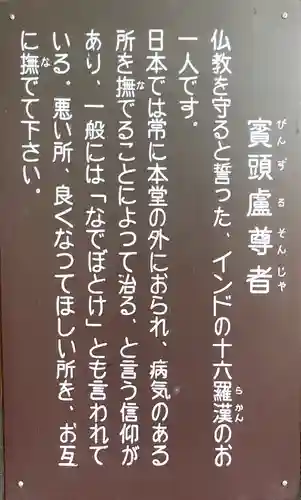 賓頭盧尊者
びんずるそんじゃ
仏教を守ると誓った、インドの十六羅漢のお
らかん
一人です。
日本では常に本堂の外におられ、病気のある
所を撫でることによつて治る、と言う信仰が
な
あり、一般には「なでぼとけ」とも言われて
いる。悪い所、良くなつてほしい所を、お互
に撫でて下さい。
な